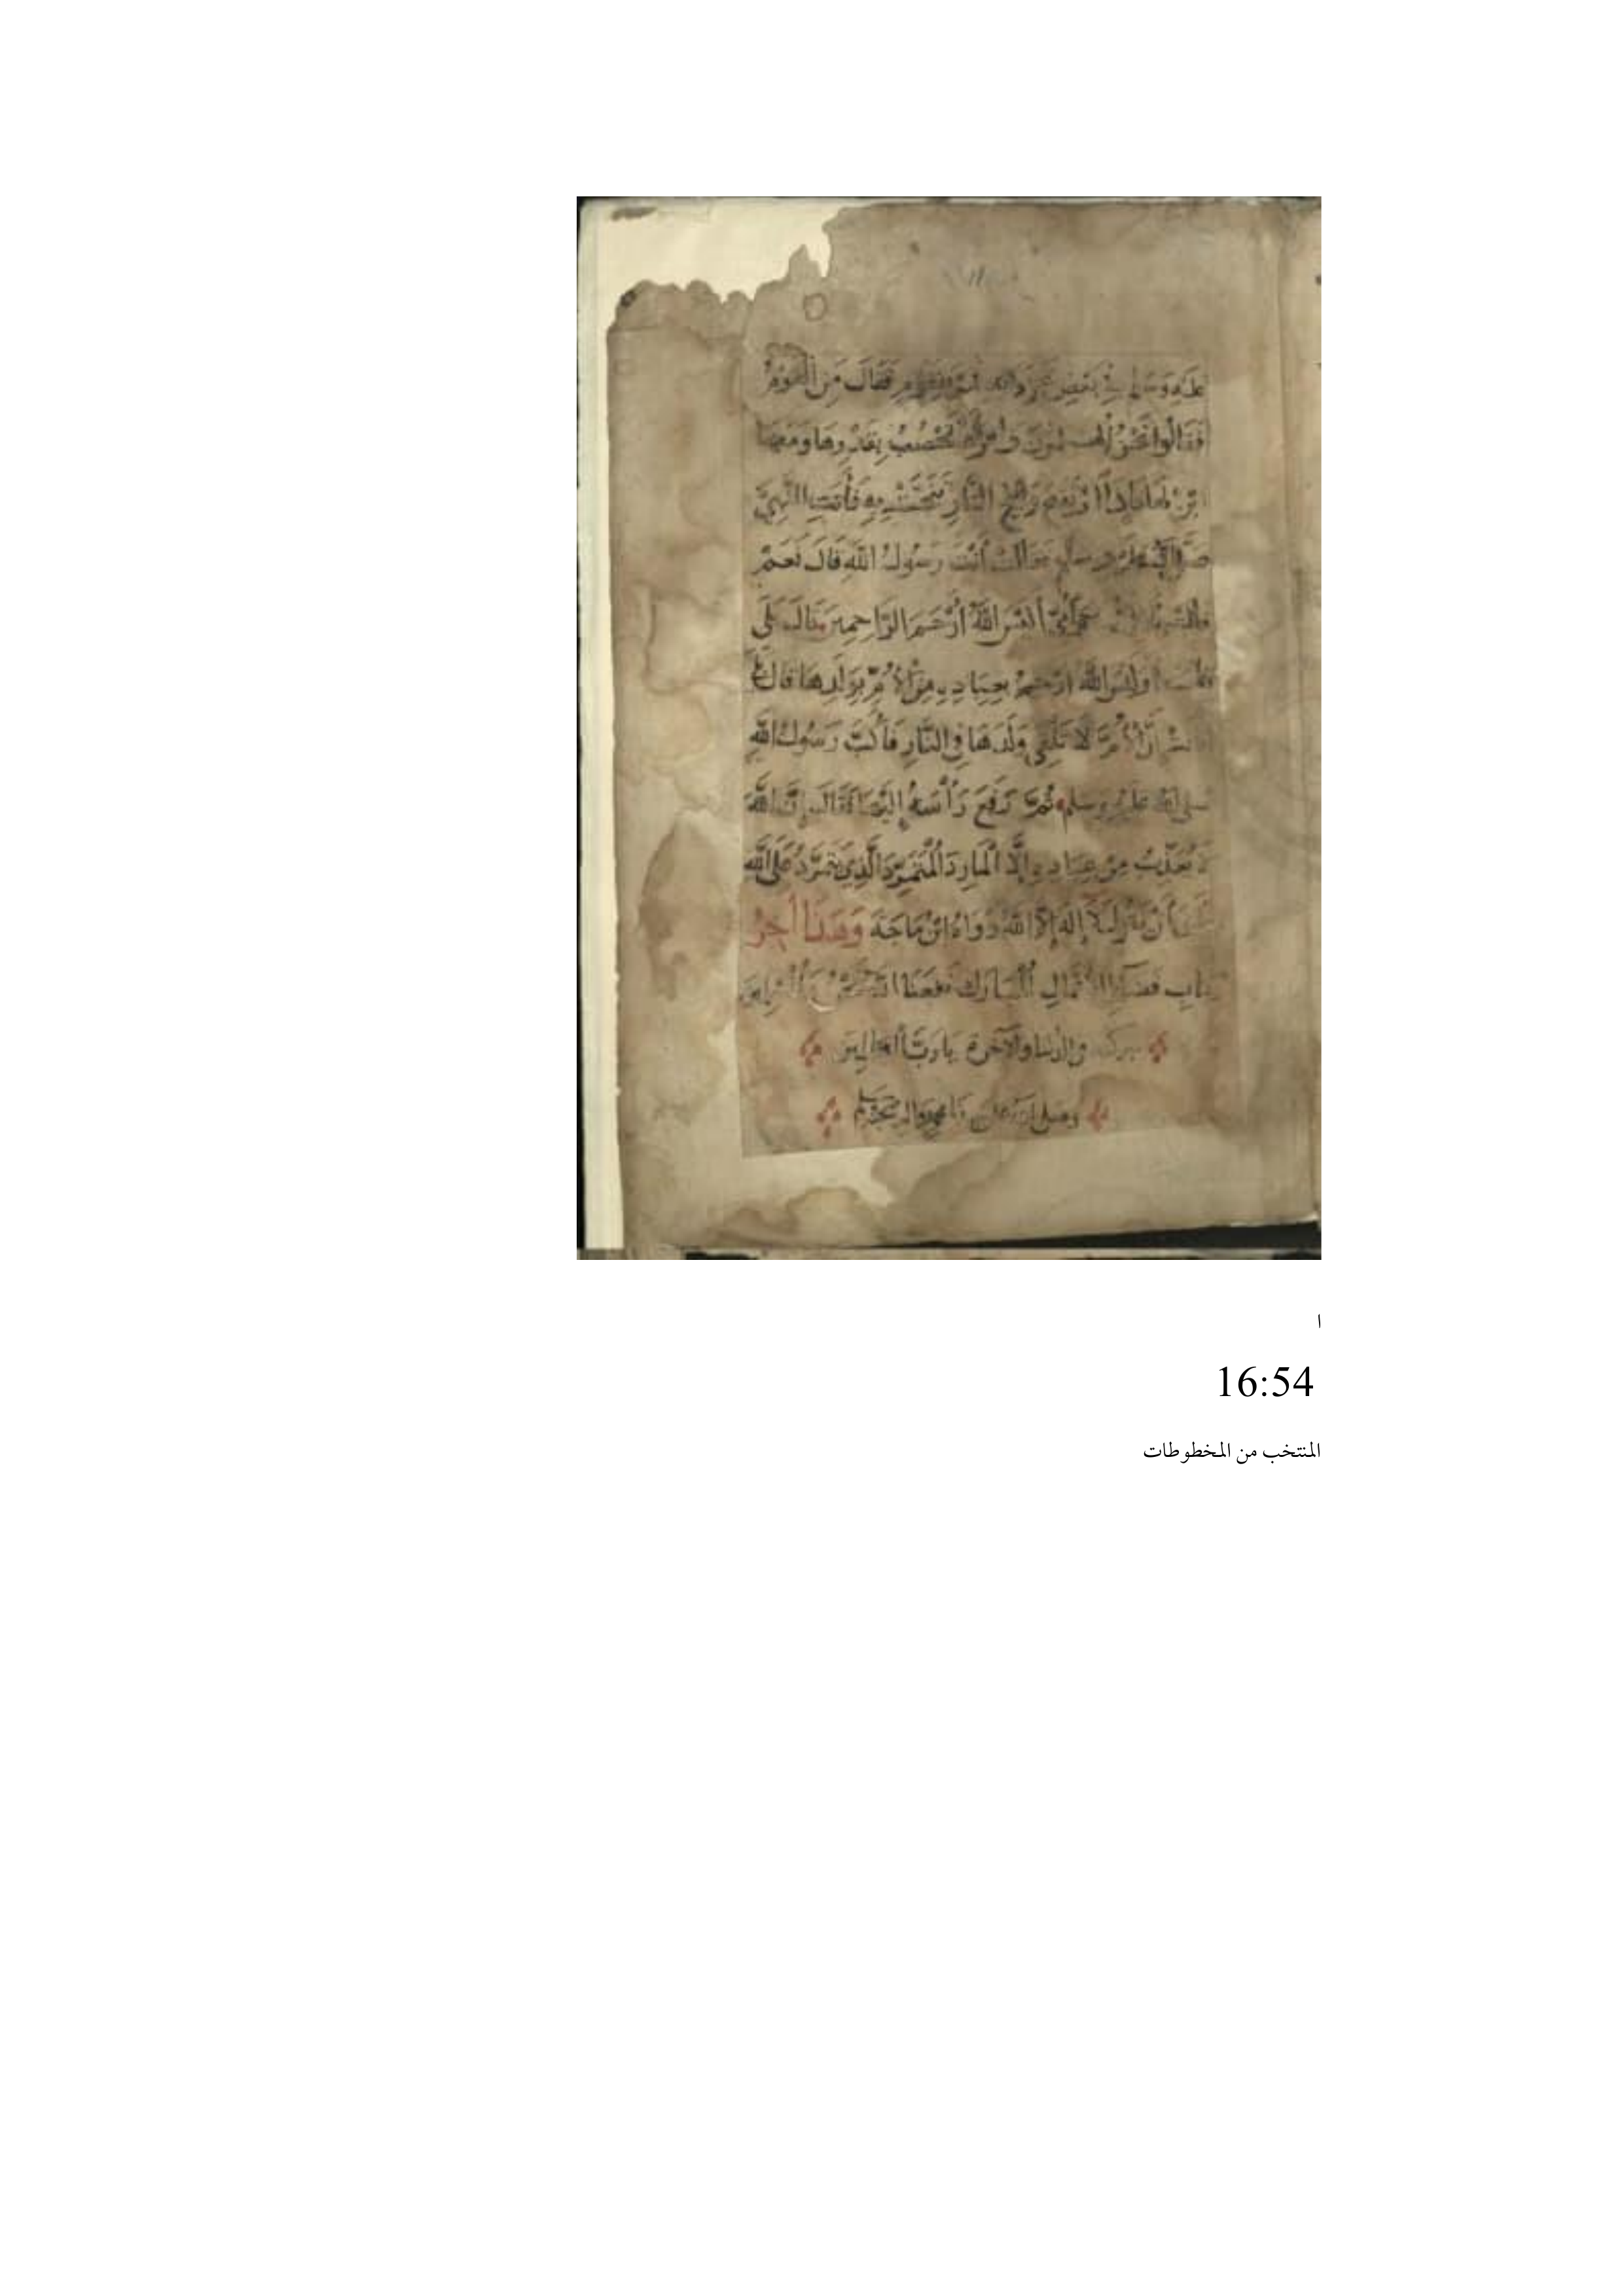 عليه وسلم في بعض غزواته فمر بقوم فقال من القوم
فقالوا نحن المسلمون وامرأة تحصب بقدرها ومعها
ابن لها فاذا ارتفع وهج النار تنحت به فأتت النبي
صلى الله عليه وسلم فقالت أنت رسول الله قال نعم
قالت بأبي وأمي أليس الله أرحم الراحمين قال بلى
قالت أوليس الله أرحم بعباده من الأم بولدها قال بلى
قالت إن الأم لا تلقي ولدها في النار فأكب رسول الله
صلى الله عليه وسلم ثم رفع رأسه إليها فقال إن الله
لا يعذب من عباده إلا المارد المتمرد الذي يتمرد على الله
أن يقول لا إله إلا الله رواه ابن ماجة وهذا آخر
كتاب فضائل الأعمال المبارك نفعنا
في الدنيا والآخرة يا رب العالمين
وصلى الله على محمد وآله وصحبه وسلم
ا
16:54
المنتخب من المخطوطات